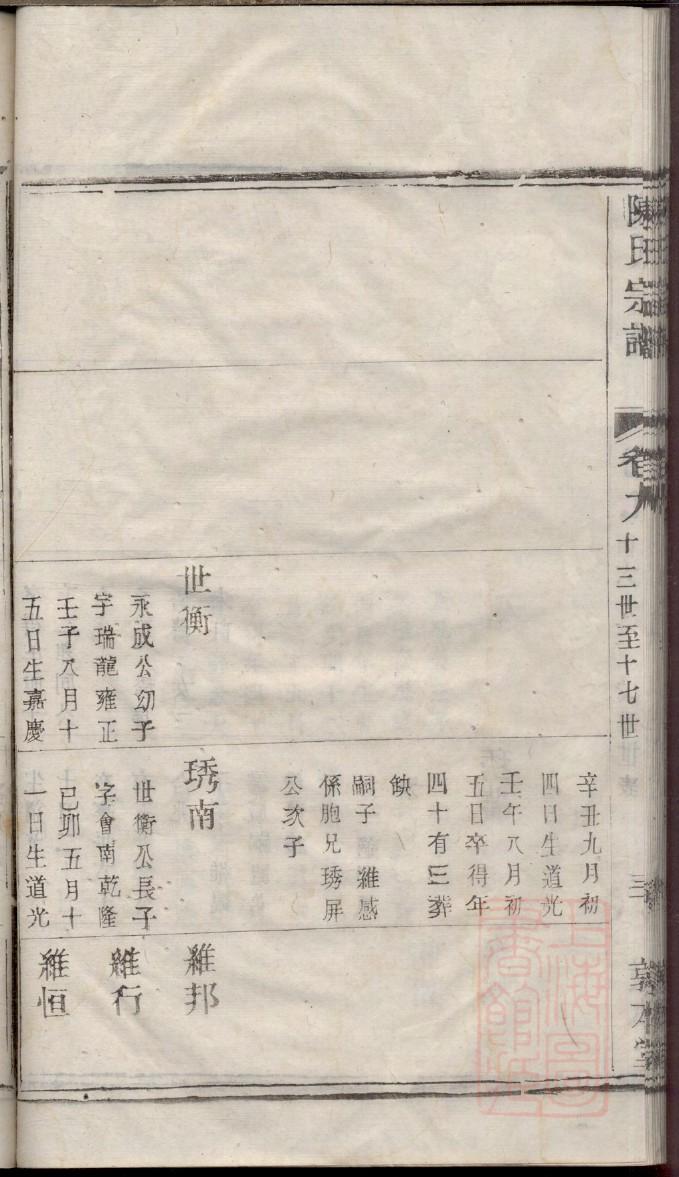 陳氏宗譜
卷九
十三世至十七世
世衡
永成公幼子
字瑞龍雍正
壬子八月十
五日生嘉慶
辛丑九月初
四日生道光
壬午八月初
五日卒得年
四十有二葬
缺
嗣子 維感
係胞兄琇屏
公次子
琇南
世衡公長子
字會南乾隆
己卯五月十
一日生道光
維邦
維行
維恒
上海圖書館藏